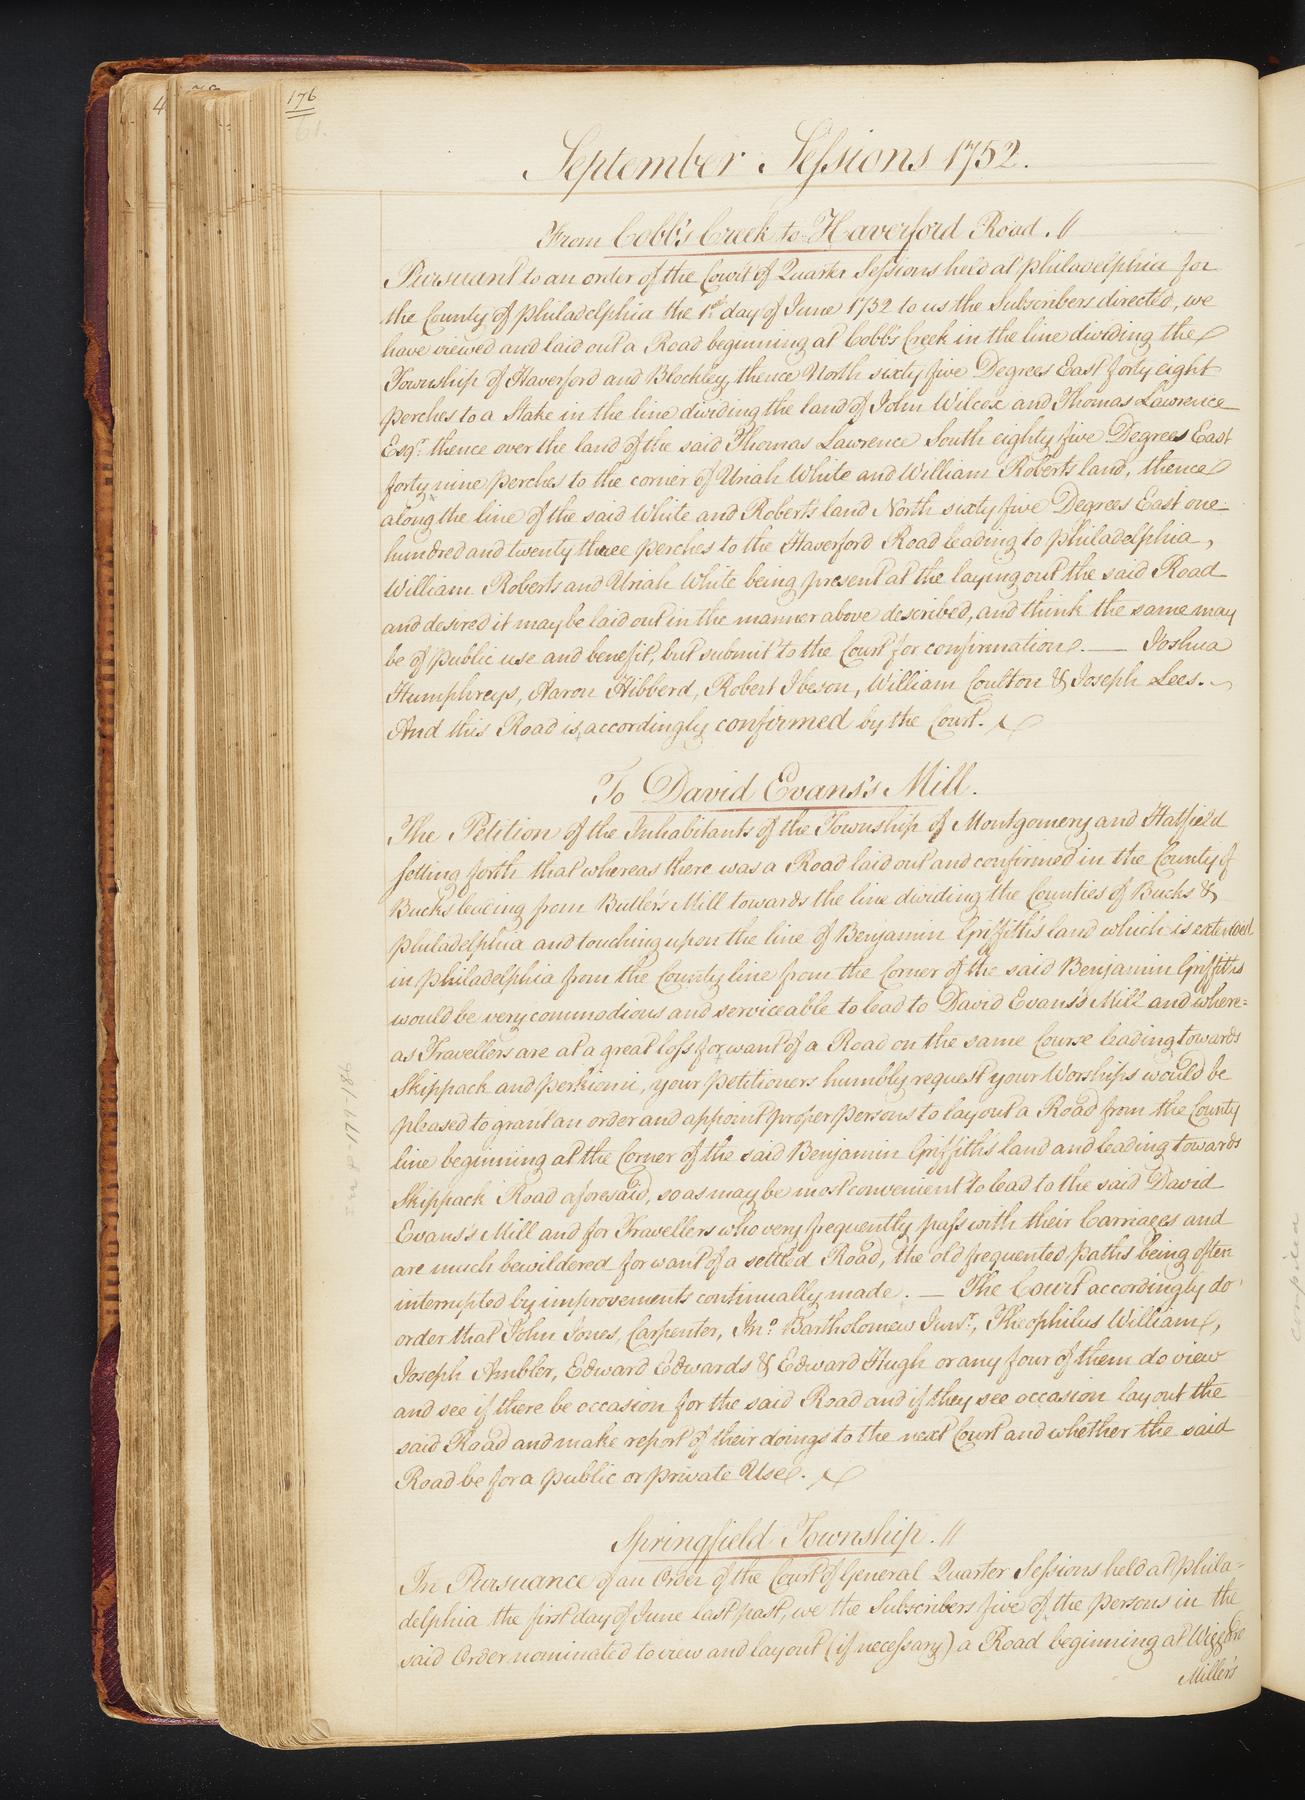 176
61.
September Sessions 1752.
From Cobb's Creek to Haverford Road. //
Pursuant to an order of the Court of Quarter Sessions held at Philadelphia for
the County of Philadelphia the 1st day of June 1752 to us the Subscribers directed, we
have viewed and laid out a Road beginning at Cobb's Creek in the line dividing the
Township of Haverford and Blockley, thence North sixty five Degrees East forty eight
perches to a Stake in the line dividing the land of John Wilcox and Thomas Lawrence
Esqr. thence over the land of the said Thomas Lawrence South eighty five Degrees East
forty nine perches to the corner of Uriah White and William Roberts land, thence
along the line of the said White and Robert's land North sixty five Degrees East one
hundred and twenty three perches to the Haverford Road leading to Philadelphia,
William Roberts and Uriah White being present at the laying out the said Road
and desired it may be laid out in the manner above described, and think the same may
be of public use and benefit, but submit to the Court for confirmation. — Joshua
Humphreys, Aaron Hibberd, Robert Ibeson, William Coulton & Joseph Lees.
And this Road is accordingly confirmed by the Court.
To David Evans's Mill.
The Petition of the Inhabitants of the Township of Montgomery and Hatfield
setting forth that whereas there was a Road laid out and confirmed in the County of
Bucks leading from Butler's Mill towards the line dividing the Counties of Bucks &
Philadelphia and touching upon the line of Benjamin Griffith's land which is extended
in Philadelphia from the County line from the Corner of the said Benjamin Griffiths
would be very commodious and serviceable to lead to David Evans's Mill and where=
as Travellers are at a great loss for want of a Road on the same Course leading towards
Skippack and Perkiomi, your Petitioners humbly request your Worships would be
pleased to grant an order and appoint proper Persons to lay out a Road from the County
line beginning at the Corner of the said Benjamin Griffith's land and leading towards
Skippack Road aforesaid, so as may be most convenient to lead to the said David
Evans's Mill and for Travellers who very frequently pass with their Carriages and
are much bewildered for want of a settled Road, the old frequented paths being often
interrupted by improvements continually made. — The Court accordingly do
order that John Jones, Carpenter, Jno. Bartholomew Junr., Theophilus William,
Joseph Ambler, Edward Edwards & Edward Hugh or any four of them do view
and see if there be occasion for the said Road and if they see occasion lay out the
said Road and make report of their doings to the next Court and whether the said
Road be for a public or private Use.
Springfield Township. //
In Pursuance of an Order of the Court of General Quarter Sessions held at Phila=
delphia the first day of June last past, we the Subscribers five of the persons in the
said Order nominated to view and lay out (if necessary) a Road beginning at
Miller's